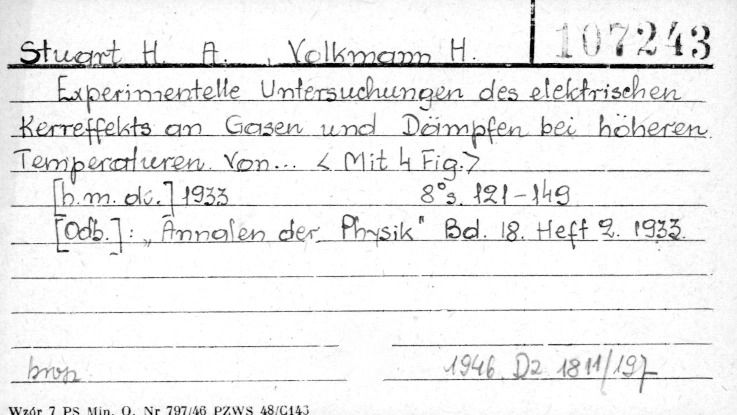 Stuart H. A., Volkmann H. 107243
Experimentelle Untersuchungen des elektrischen
Kerreffekts an Gasen und Dämpfen bei höheren
Temperaturen. Von... <Mit 4 Fig.>
[b.m. dr.] 1933 8° s. 121-149
[Odb.]: „Annalen der Physik" Bd. 18. Heft 2. 1933.
brosz 1946. Dz 1811/197
Wzór 7 PS Min. O. Nr 797/46 PZWS 48/G143